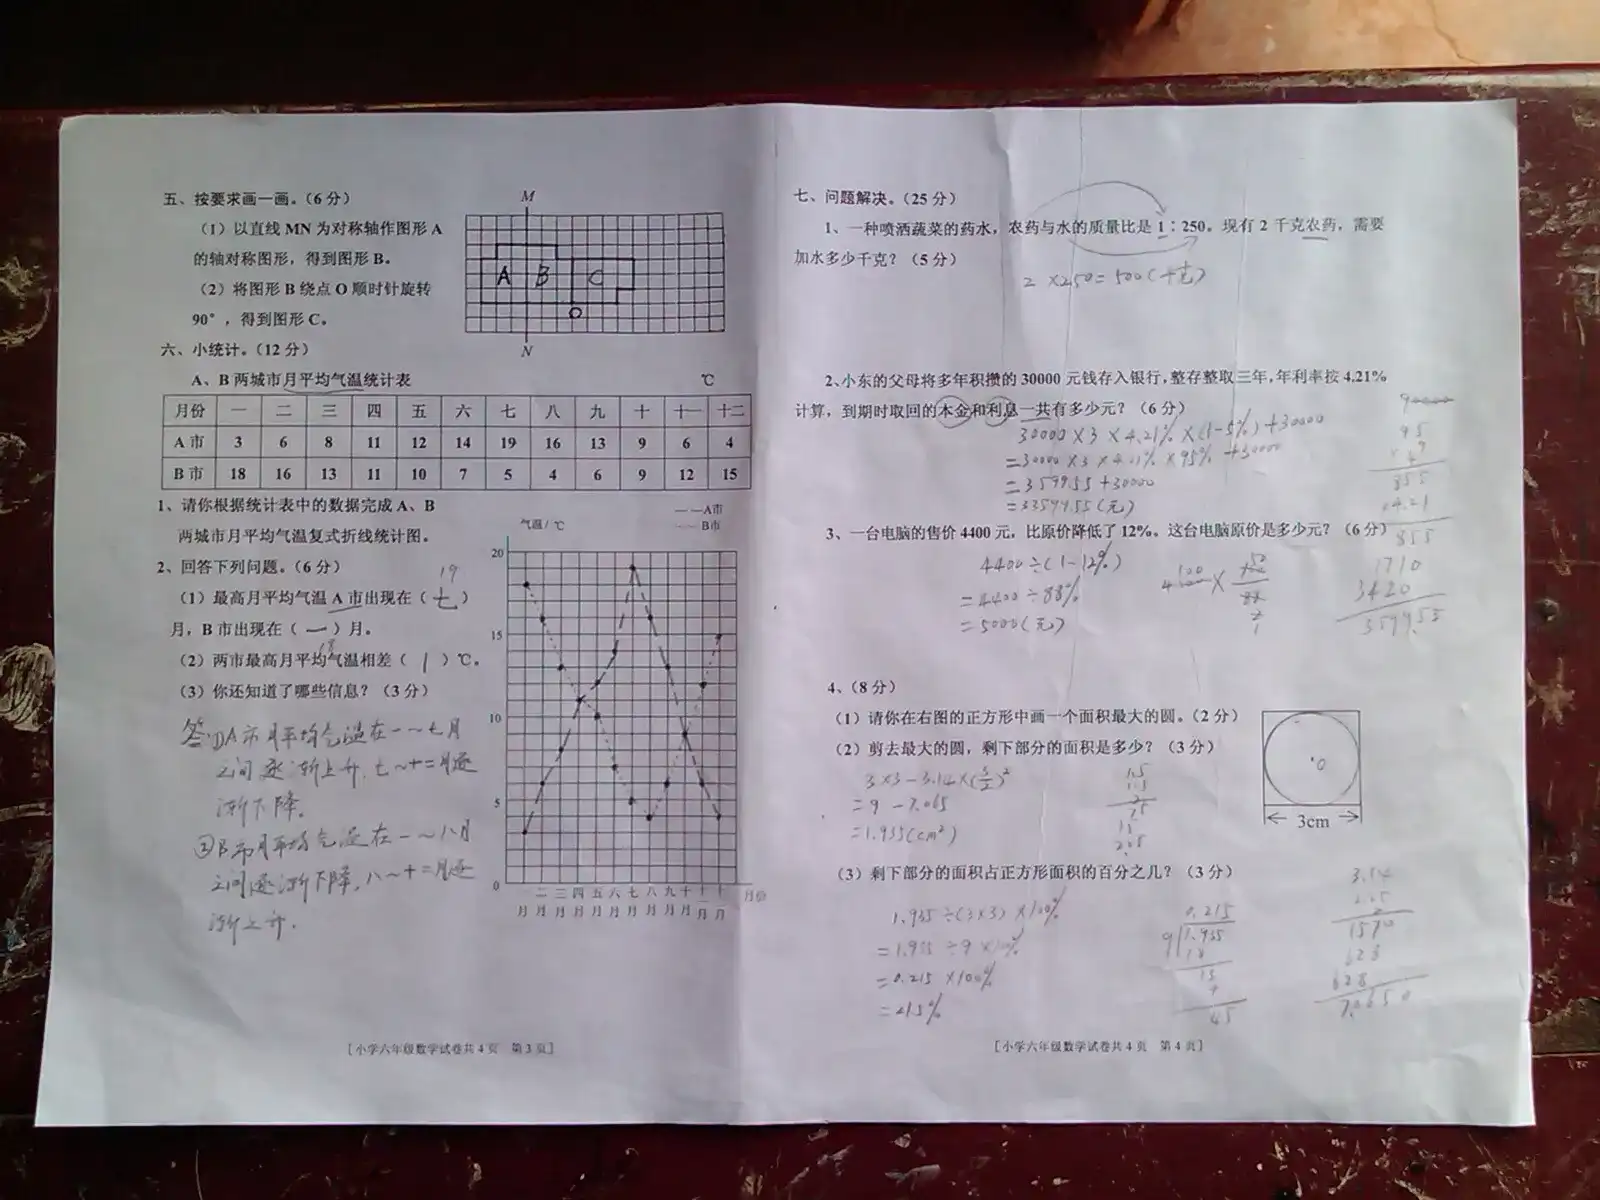 五、按要求画一画。（6 分）
（1）以直线 MN 为对称轴作图形 A
的轴对称图形，得到图形 B。
（2）将图形 B 绕点 O 顺时针旋转
90°，得到图形 C。
M
A B C
O
N
六、小统计。（12 分）
A、B 两城市月平均气温统计表 ℃
月份 一 二 三 四 五 六 七 八 九 十 十一 十二
A 市 3 6 8 11 12 14 19 16 13 9 6 4
B 市 18 16 13 11 10 7 5 4 6 9 12 15
1、请你根据统计表中的数据完成 A、B
两城市月平均气温复式折线统计图。
2、回答下列问题。（6 分）
19
（1）最高月平均气温 A 市出现在（ 七 ）
月，B 市出现在（ 一 ）月。
18
（2）两市最高月平均气温相差（ 1 ）℃。
（3）你还知道了哪些信息？（3 分）
答:①A市月平均气温在一～七月
之间逐渐上升,七～十二月逐
渐下降。
②B市月平均气温在一～八月
之间逐渐下降,八～十二月逐
渐上升.
气温/℃
— —A市
B市
20
15
10
5
0
二 三 四 五 六 七 八 九 十 十 十
月 月 月 月 月 月 月 月 月 月 一月 二月
月份
［小学六年级数学试卷共 4 页　第 3 页］
七、问题解决。（25 分）
1、一种喷洒蔬菜的药水，农药与水的质量比是 1∶250。现有 2 千克农药，需要
加水多少千克？（5 分）
2×250=500(千克)
2、小东的父母将多年积攒的 30000 元钱存入银行，整存整取三年，年利率按 4.21%
计算，到期时取回的本金和利息一共有多少元？（6 分）
30000×3×4.21%×(1-5%)+30000
=30000×3×4.21%×95%+30000
=3599.55+30000
=33599.55(元)
95
×9
855
4.21
855
1710
3420
3599.55
3、一台电脑的售价 4400 元，比原价降低了 12%。这台电脑原价是多少元？（6 分）
4400÷(1-12%)
=4400÷88%
=5000(元)
4、（8 分）
（1）请你在右图的正方形中画一个面积最大的圆。（2 分）
（2）剪去最大的圆，剩下部分的面积是多少？（3 分）
3×3-3.14×(3/2)²
=9-7.065
=1.935(cm²)
1.5
1.5
75
15
2.25
O
3cm
（3）剩下部分的面积占正方形面积的百分之几？（3 分）
1.935÷(3×3)×100%
=1.935÷9×100%
=0.215×100%
=21.5%
0.215
9 1.935
18
13
9
45
3.14
2.25
1570
628
628
7.0650
［小学六年级数学试卷共 4 页　第 4 页］